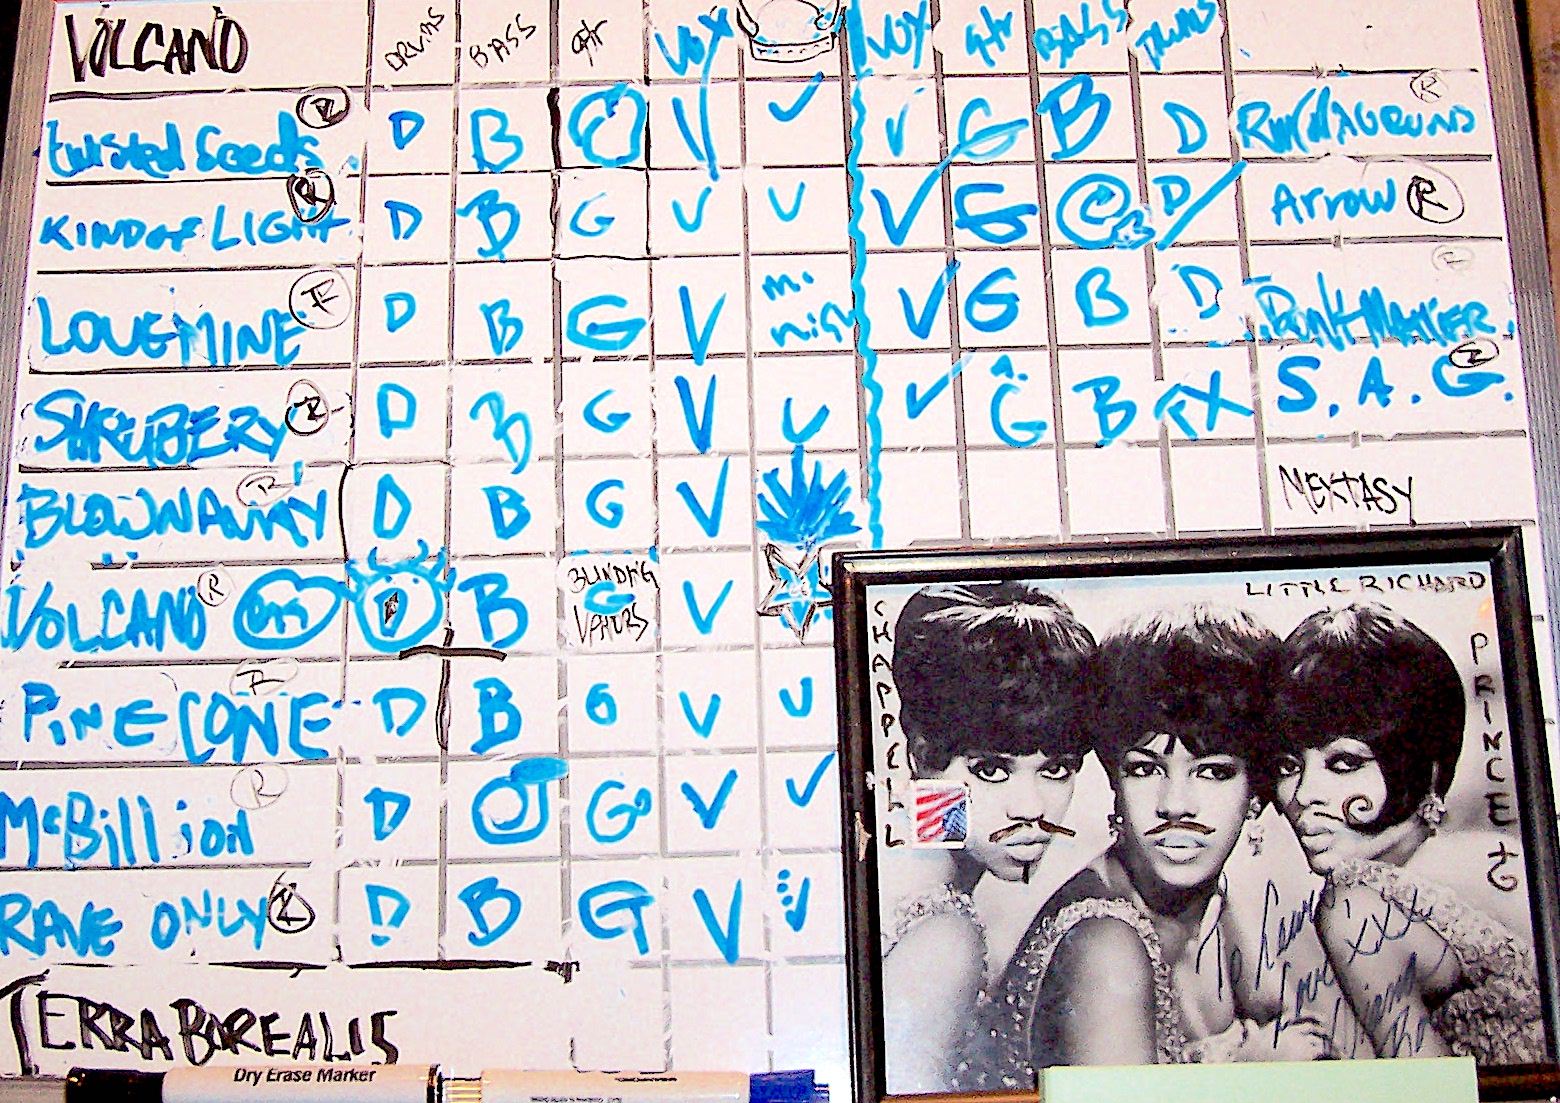 VOLCANO DRUMS BASS Gtr VOX VOX Gtr BASS DRUMS
twisted Seeds R D B V ✓ ✓ G B D R
KIND OF LIGHT R D B G V V V G B D Arrow R
LOVE MINE R D B G V V G B D R
SHRUBERY R D B G V V V G B TX S.A.G. R
BLOWNAWAY R D B G V MEXTASY
VOLCANO R D B G V
PINE CONE R D B G V V
McBillion R D B G V ✓
RAVE ONLY R D B G V V
TERRA BOREALIS
Dry Erase Marker
LITTLE RICHARD
CHAPPELL
PRINCE
To
Love XXX